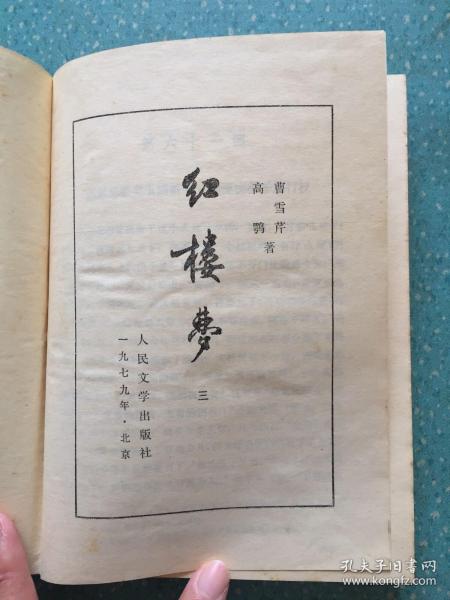 曹雪芹
高鹗 著
红楼梦
三
人民文学出版社
一九七九年·北京
孔夫子旧书网
www.kongfz.com